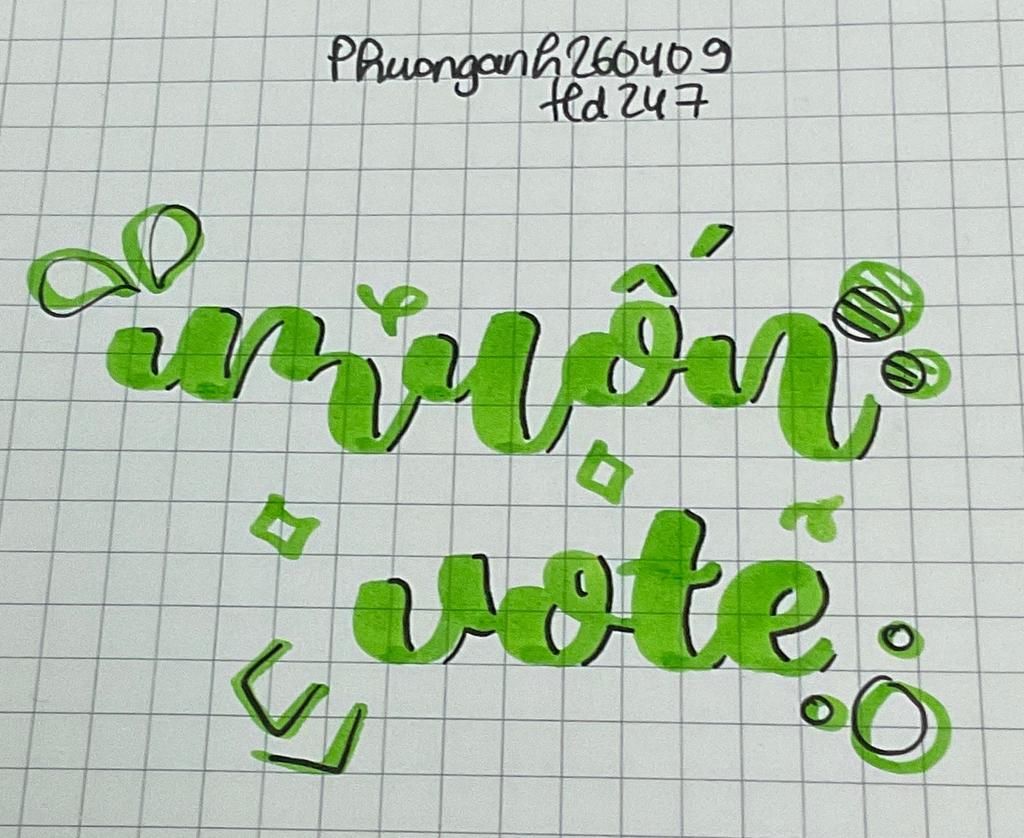 Phuonganh260409
tld247
muốn
vote